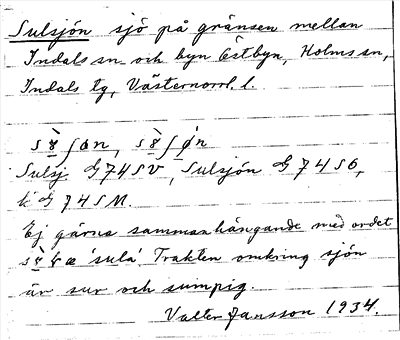 Sulsjön sjö på gränsen mellan
Indals sn och byn Östbyn, Holms sn,
Indals tg, Västernorrl. l.
Sulsj. G 74 SV, Sulsjön G 74 SO,
k G 74 SM.
Ej gärna sammanhängande med ordet
'sula'. Trakten omkring sjön
är sur och sumpig.
Valter Jansson 1934.